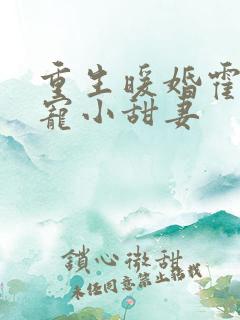 重生暖婚霍
寵小甜妻
鎖心微甜
未经同意禁止转载